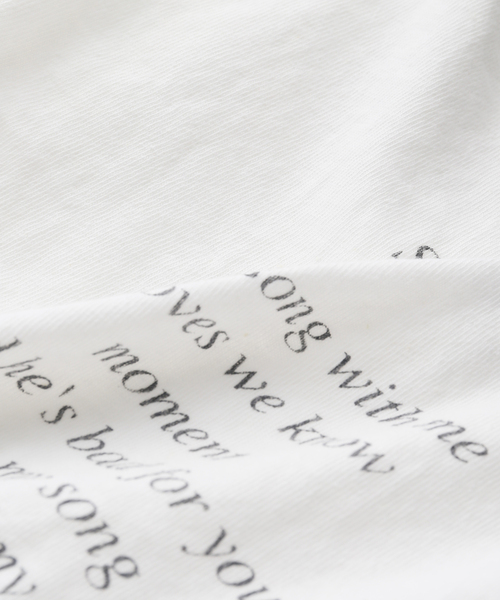 ong with me
oves we know
moment
he's bad for you
song
my